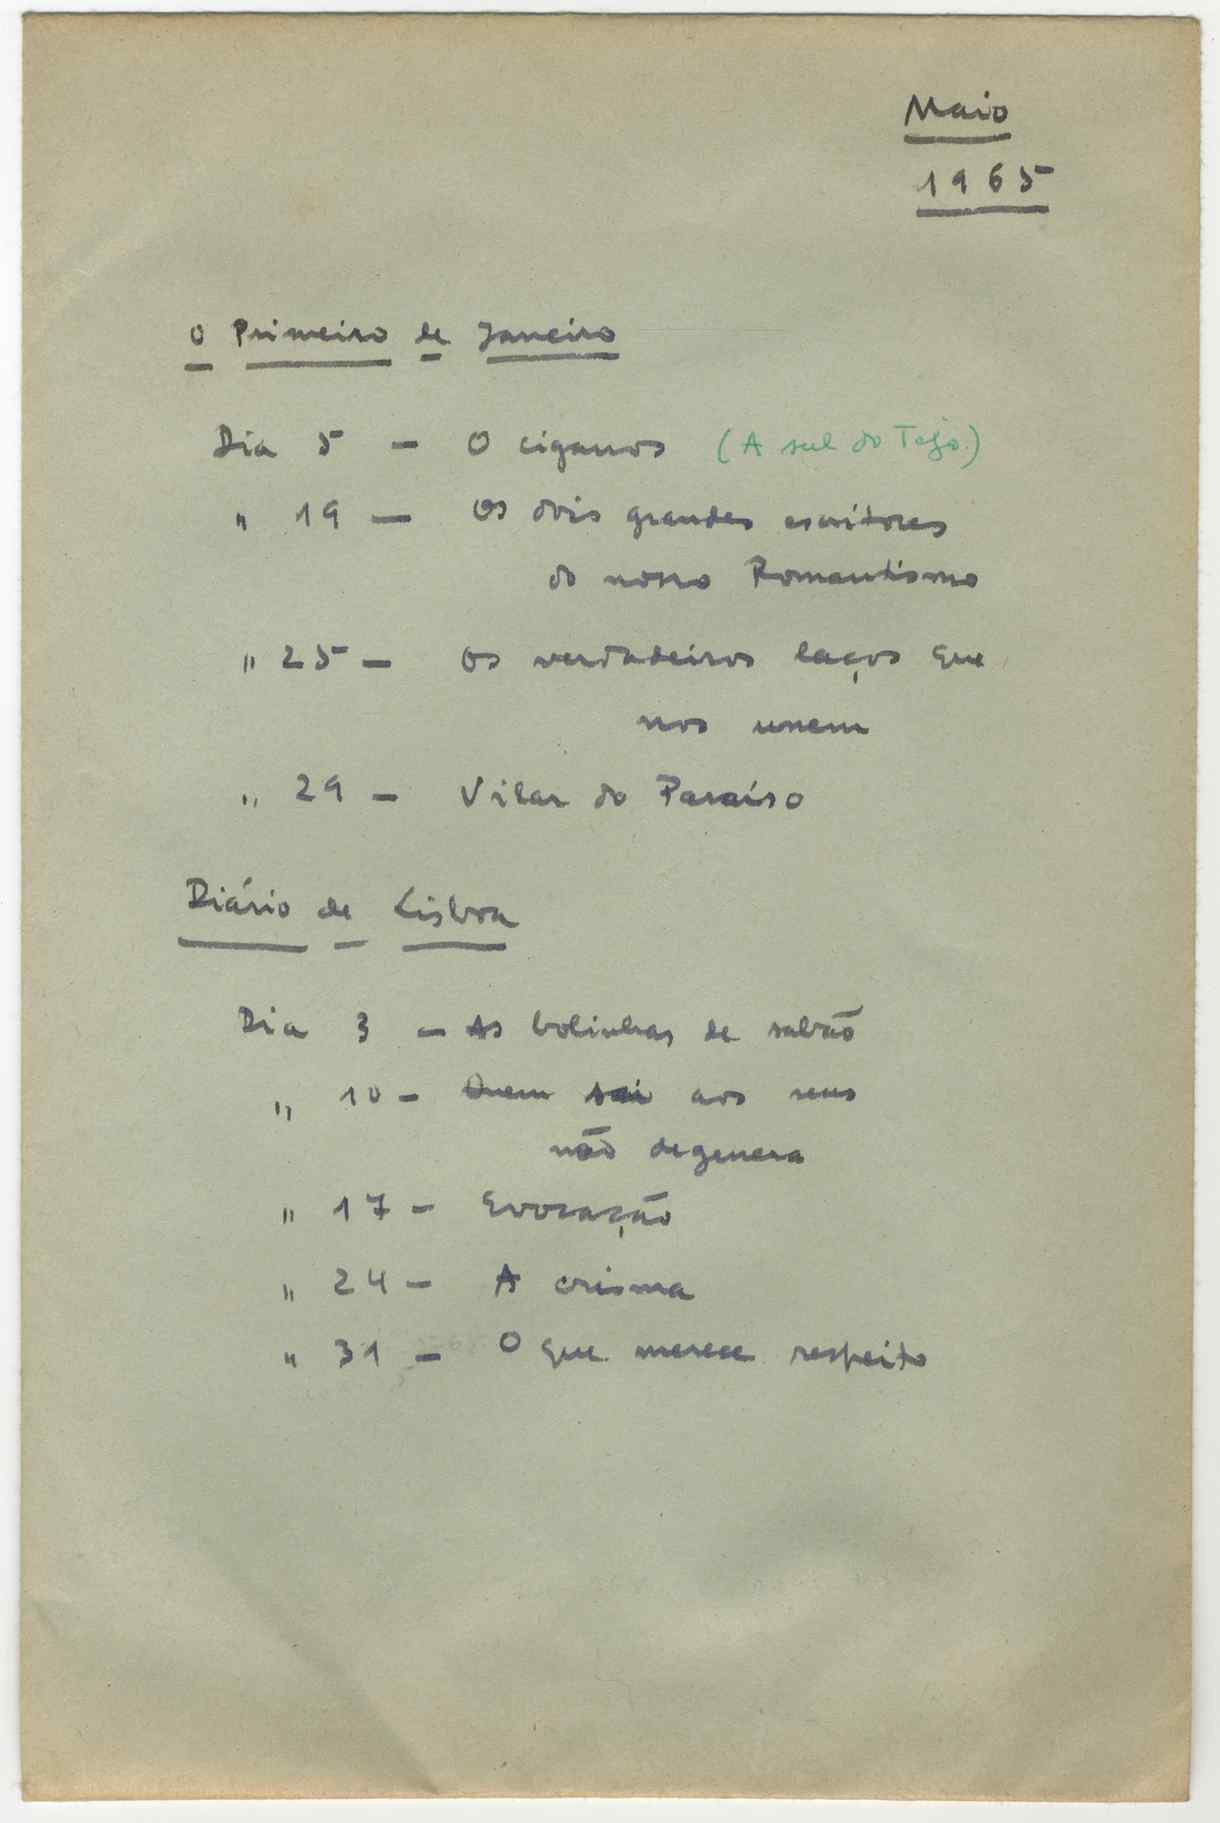 Maio
1965
O Primeiro de Janeiro
Dia 5 — O ciganos (A sul do Tejo.)
" 19 — Os dois grandes escritores
do nosso Romantismo
" 25 — Os verdadeiros laços que
nos unem
" 29 — Vilar do Paraíso
Diário de Lisboa
Dia 3 — As bolinhas de sabão
" 10 — Quem sai aos seus
não degenera
" 17 — Evocação
" 24 — A crisma
" 31 — O que merece respeito